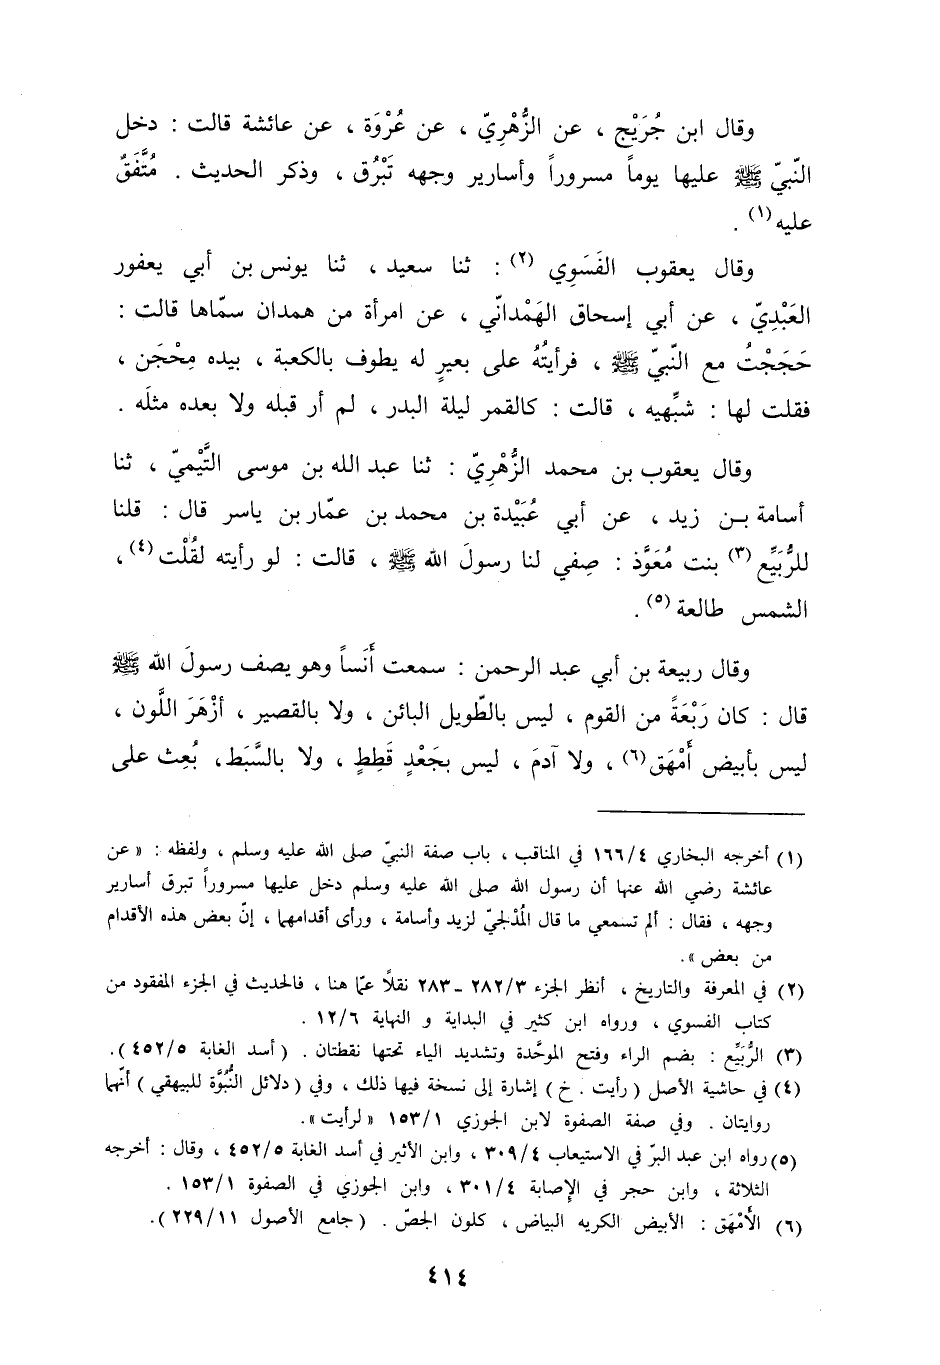 وقال ابن جُرَيْج ، عن الزُّهْرِيّ ، عن عُرْوَة ، عن عائشة قالت : دخل
النّبيّ ﷺ عليها يوماً مسروراً وأسارير وجهه تَبْرُق ، وذكر الحديث . مُتَّفَقٌ
عليه(١) .
وقال يعقوب الفَسَوِي (٢) : ثنا سعيد ، ثنا يونس بن أبي يعفور
العَبْدِيّ ، عن أبي إسحاق الهَمْدانّي ، عن امرأة من همدان سمّاها قالت :
حَجَجْتُ مع النّبيّ ﷺ ، فرأيتُهُ على بعيرٍ له يطوف بالكعبة ، بيده مِحْجَن ،
فقلت لها : شبِّهيه ، قالت : كالقمر ليلة البدر ، لم أر قبله ولا بعده مثلَه .
وقال يعقوب بن محمد الزُّهْرِيّ : ثنا عبد الله بن موسى التَّيْميّ ، ثنا
أسامة بن زيد ، عن أبي عُبَيْدة بن محمد بن عمّار بن ياسر قال : قلنا
للرُّبَيِّع (٣) بنت مُعَوَّذ : صِفي لنا رسولَ الله ﷺ ، قالت : لو رأيته لقُلْت(٤) ،
الشمس طالعة (٥) .
وقال ربيعة بن أبي عبد الرحمن : سمعت أَنَساً وهو يصف رسولَ الله ﷺ
قال : كان رَبْعَةً من القوم ، ليس بالطّويل البائن ، ولا بالقصير ، أزْهَرَ اللَّون ،
ليس بأبيض أَمْهَق(٦) ، ولا آدمَ ، ليس بجَعْدٍ قَطِطٍ ، ولا بالسَّبَط، بُعِث على
(١) أخرجه البخاري ١٦٦/٤ في المناقب ، باب صفة النبيّ صلى الله عليه وسلم ، ولفظه : « عن
عائشة رضي الله عنها أن رسول الله صلى الله عليه وسلم دخل عليها مسروراً تبرق أسارير
وجهه ، فقال : ألم تسمعي ما قال المُدْلجيّ لزيد وأسامة ، ورأى أقدامهما ، إنّ بعض هذه الأقدام
من بعض ».
(٢) في المعرفة والتاريخ ، أنظر الجزء ٢٨٢/٣ - ٢٨٣ نقلاً عمّا هنا ، فالحديث في الجزء المفقود من
كتاب الفسوي ، ورواه ابن كثير في البداية و النهاية ١٢/٦ .
(٣) الرُّبَيِّع : بضم الراء وفتح الموحَّدة وتشديد الياء تحتها نقطتان . ( أسد الغابة ٤٥٢/٥ ).
(٤) في حاشية الأصل ( رأيت . خ ) إشارة إلى نسخة فيها ذلك ، وفي ( دلائل النُّبُوَّة للبيهقي ) أنّهما
روايتان . وفي صفة الصفوة لابن الجوزي ١٥٣/١ « لرأيت ».
(٥) رواه ابن عبد البرّ في الاستيعاب ٣٠٩/٤ ، وابن الأثير في أسد الغابة ٤٥٢/٥ ، وقال : أخرجه
الثلاثة ، وابن حجر في الإصابة ٣٠١/٤ ، وابن الجوزي في الصفوة ١٥٣/١ .
(٦) الأَمْهَق : الأبيض الكريه البياض ، كلون الجصّ . ( جامع الأصول ٢٢٩/١١ ).
٤١٤